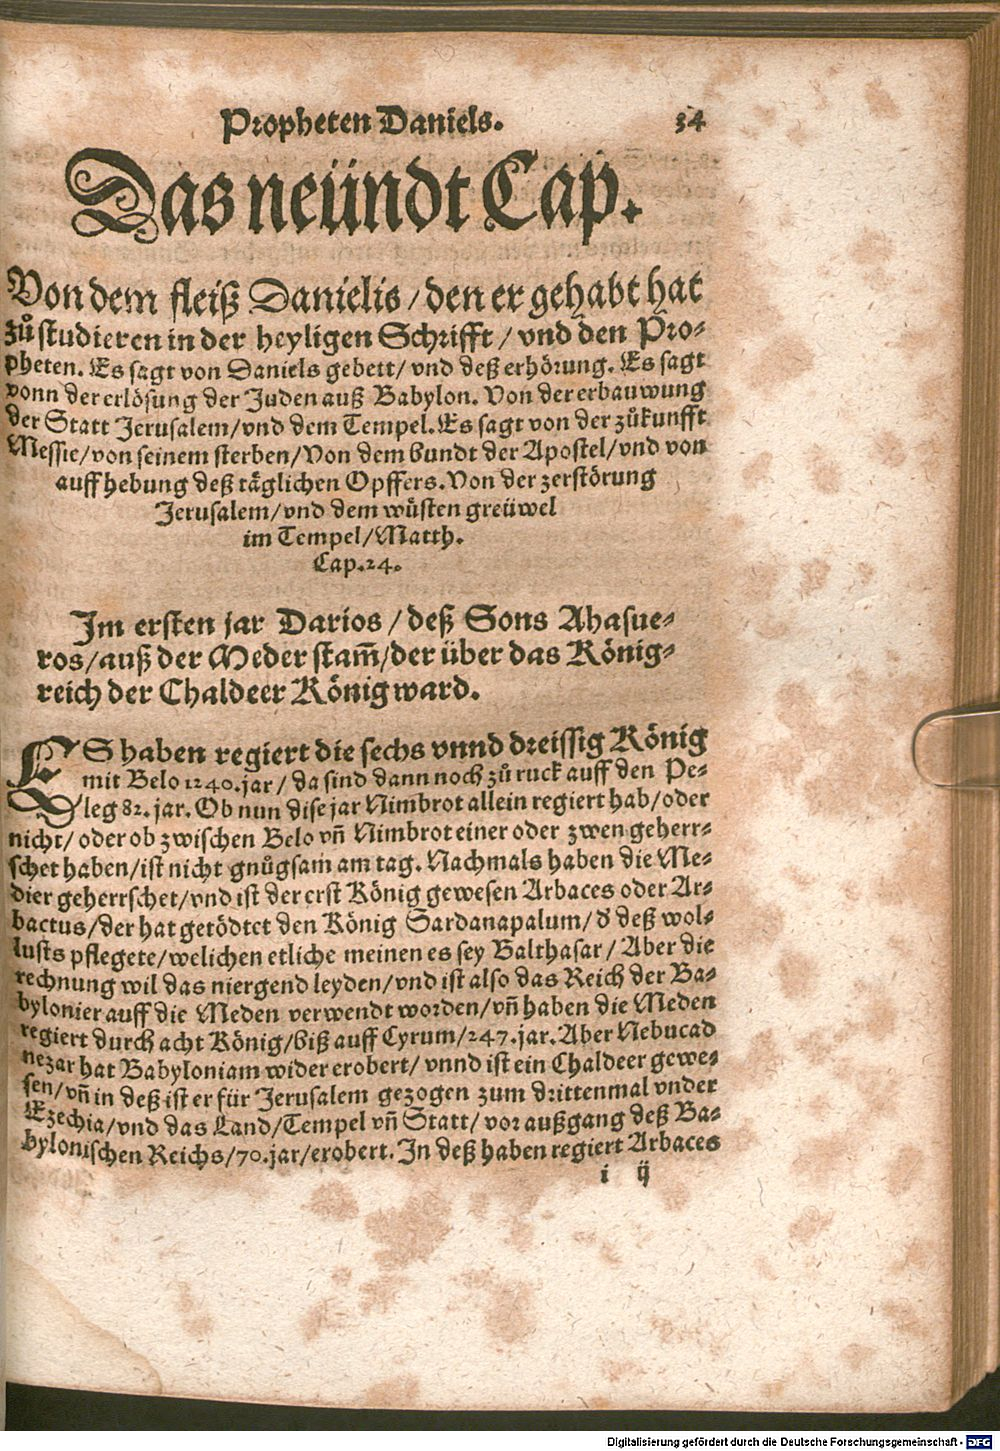 Propheten Daniels. 34
Das neündt Cap.
Von dem fleiß Danielis / den er gehabt hat
zů studieren in der heyligen Schrifft / vnd den Pro-
pheten. Es sagt von Daniels gebett / vnd deß erhörung. Es sagt
vonn der erlösung der Juden auß Babylon. Von der erbauwung
der Statt Jerusalem / vnd dem Tempel. Es sagt von der zůkunfft
Messie / von seinem sterben / Von dem bundt der Apostel / vnd von
auffhebung deß täglichen Opffers. Von der zerstörung
Jerusalem / vnd dem wůsten greüwel
im Tempel / Matth.
Cap. 24.
Im ersten jar Darios / deß Sons Ahasue-
ros / auß der Meder stam̃ / der über das König-
reich der Chaldeer König ward.
ES haben regiert die sechs vnnd dreissig König
mit Belo 1240. jar / da sind dann noch zů ruck auff den Pe-
leg 82. jar. Ob nun dise jar Nimbrot allein regiert hab / oder
nicht / oder ob zwischen Belo vñ Nimbrot einer oder zwen geherr-
schet haben / ist nicht gnůgsam am tag. Nachmals haben die Me-
dier geherrschet / vnd ist der erst König gewesen Arbaces oder Ar-
bactus / der hat getödtet den König Sardanapalum / d̕ deß wol-
lusts pflegete / welichen etliche meinen es sey Balthasar / Aber die
rechnung wil das niergend leyden / vnd ist also das Reich der Ba-
bylonier auff die Meden verwendt worden / vñ haben die Meden
regiert durch acht König / biß auff Cyrum / 247. jar. Aber Nebucad
nezar hat Babyloniam wider erobert / vnnd ist ein Chaldeer gewe-
sen / vñ in deß ist er für Jerusalem gezogen zum drittenmal vnder
Ezechia / vnd das Land / Tempel vñ Statt / vor außgang deß Ba-
bylonischen Reichs / 70. jar / erobert. In deß haben regiert Arbaces
i ij
Digitalisierung gefördert durch die Deutsche Forschungsgemeinschaft - DFG